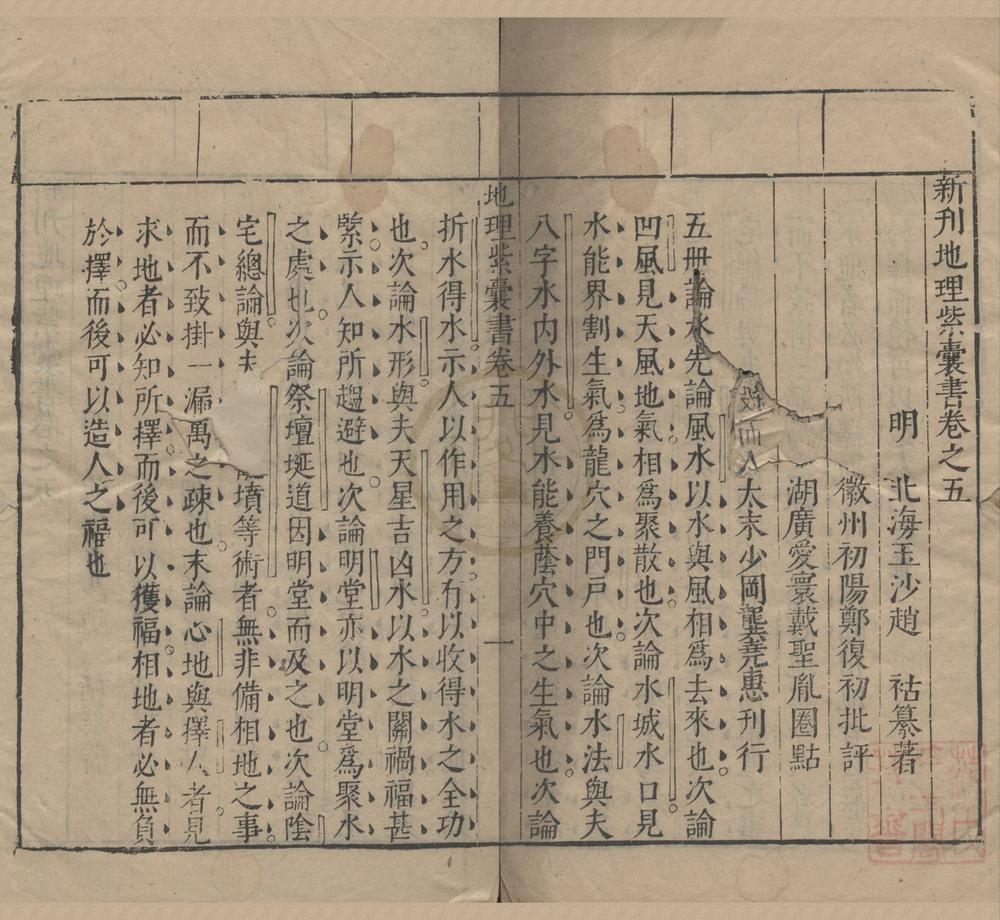 新刊地理紫囊書卷之五
明 北海玉沙趙 祜纂著
徽州初陽鄭復初批評
湖廣愛寰戴聖胤圈點
太末少岡龔堯惠刊行
五册論水先論風水以水與風相爲去來也次論
凹風見天風地氣相爲聚散也次論水城水口見
水能界割生氣爲龍穴之門戸也次論水法與夫
八字水内外水見水能養蔭穴中之生氣也次論
地理紫囊書卷五 一
折水得水示人以作用之方有以收得水之全功
也次論水形與夫天星吉凶水以水之關禍福甚
緊示人知所趨避也次論明堂亦以明堂爲聚水
之處也次論祭壇埏道因明堂而及之也次論陰
宅總論與夫墳等術者無非備相地之事
而不致掛一漏萬之疎也末論心地與擇人者見
求地者必知所擇而後可以獲福相地者必無負
於擇而後可以造人之福也